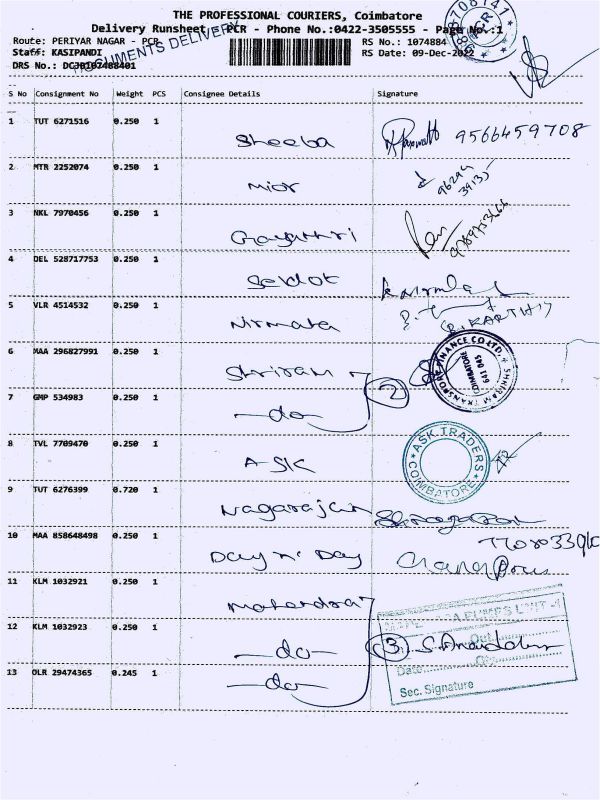 THE PROFESSIONAL COURIERS, Coimbatore
Delivery Runsheet - PCR - Phone No.:0422-3505555 - Page No.:1
Route: PERIYAR NAGAR - PCR
RS No.: 1074884
Staff: KASIPANDI
RS Date: 09-Dec-2022
DRS No.: DCJB107488401
DOCUMENTS DELIVERY
S No Consignment No Weight PCS Consignee Details Signature
1 TUT 6271516 0.250 1 Sheeba 9566459708
2 MTR 2252074 0.250 1 Mior
3 NKL 7970456 0.250 1 Gayathri
4 DEL 528717753 0.250 1 Seldot
5 VLR 4514532 0.250 1 Nirmala
R. KARTHI
6 MAA 296827991 0.250 1 Shriram
SHRIRAM TRANSPORT FINANCE CO LTD. COIMBATORE 641 045
7 GMP 534983 0.250 1 -do- 2
8 TVL 7709470 0.250 1 A-SK
ASK TRADERS COIMBATORE
9 TUT 6276399 0.720 1 Nagarajan
10 MAA 858648498 0.250 1 Day n' Day
11 KLM 1032921 0.250 1 Mahendra
12 KLM 1032923 0.250 1 -do- 3
13 OLR 29474365 0.245 1 -do-
Out
Date
Sec. Signature